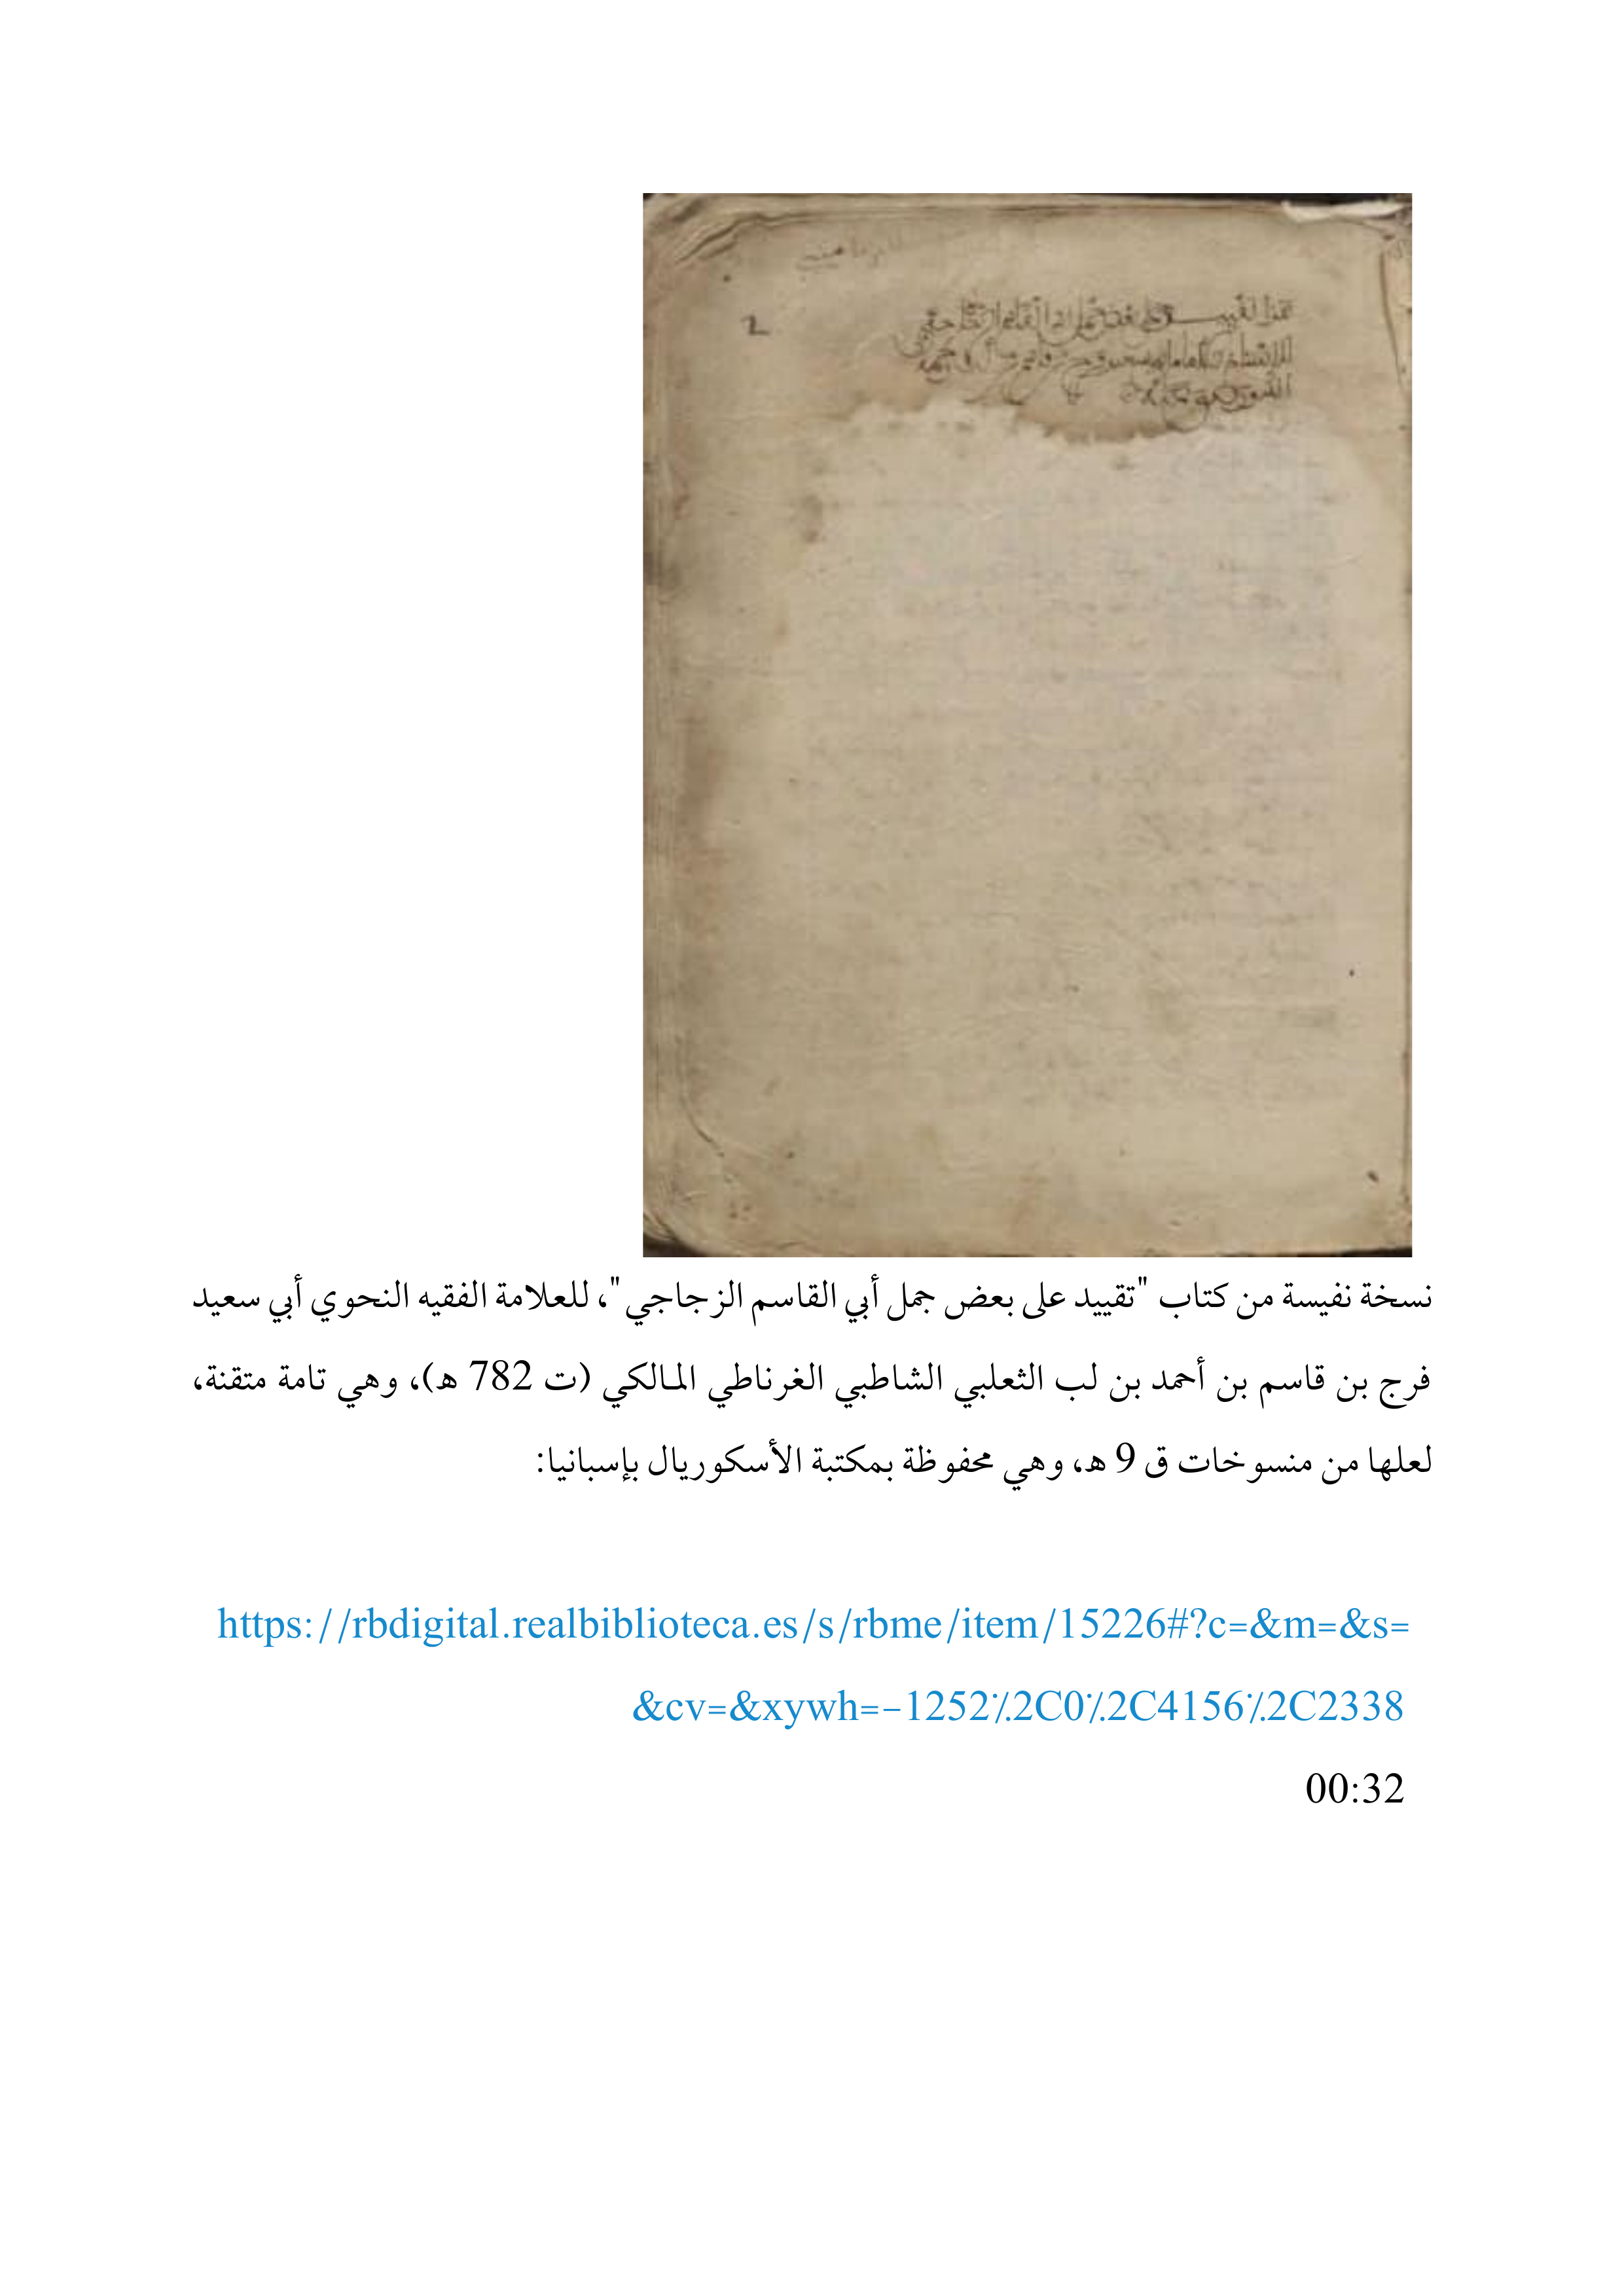 2
نسخة نفيسة من كتاب "تقييد على بعض جمل أبي القاسم الزجاجي"، للعلامة الفقيه النحوي أبي سعيد
فرج بن قاسم بن أحمد بن لب الثعلبي الشاطبي الغرناطي المالكي (ت 782 هـ)، وهي تامة متقنة،
لعلها من منسوخات ق 9 هـ، وهي محفوظة بمكتبة الأسكوريال بإسبانيا:
https://rbdigital.realbiblioteca.es/s/rbme/item/15226#?c=&m=&s=
&cv=&xywh=-1252٪2C0٪2C4156٪2C2338
00:32